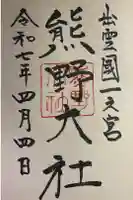 出雲國一之宮
熊野大社
令和七年四月四日